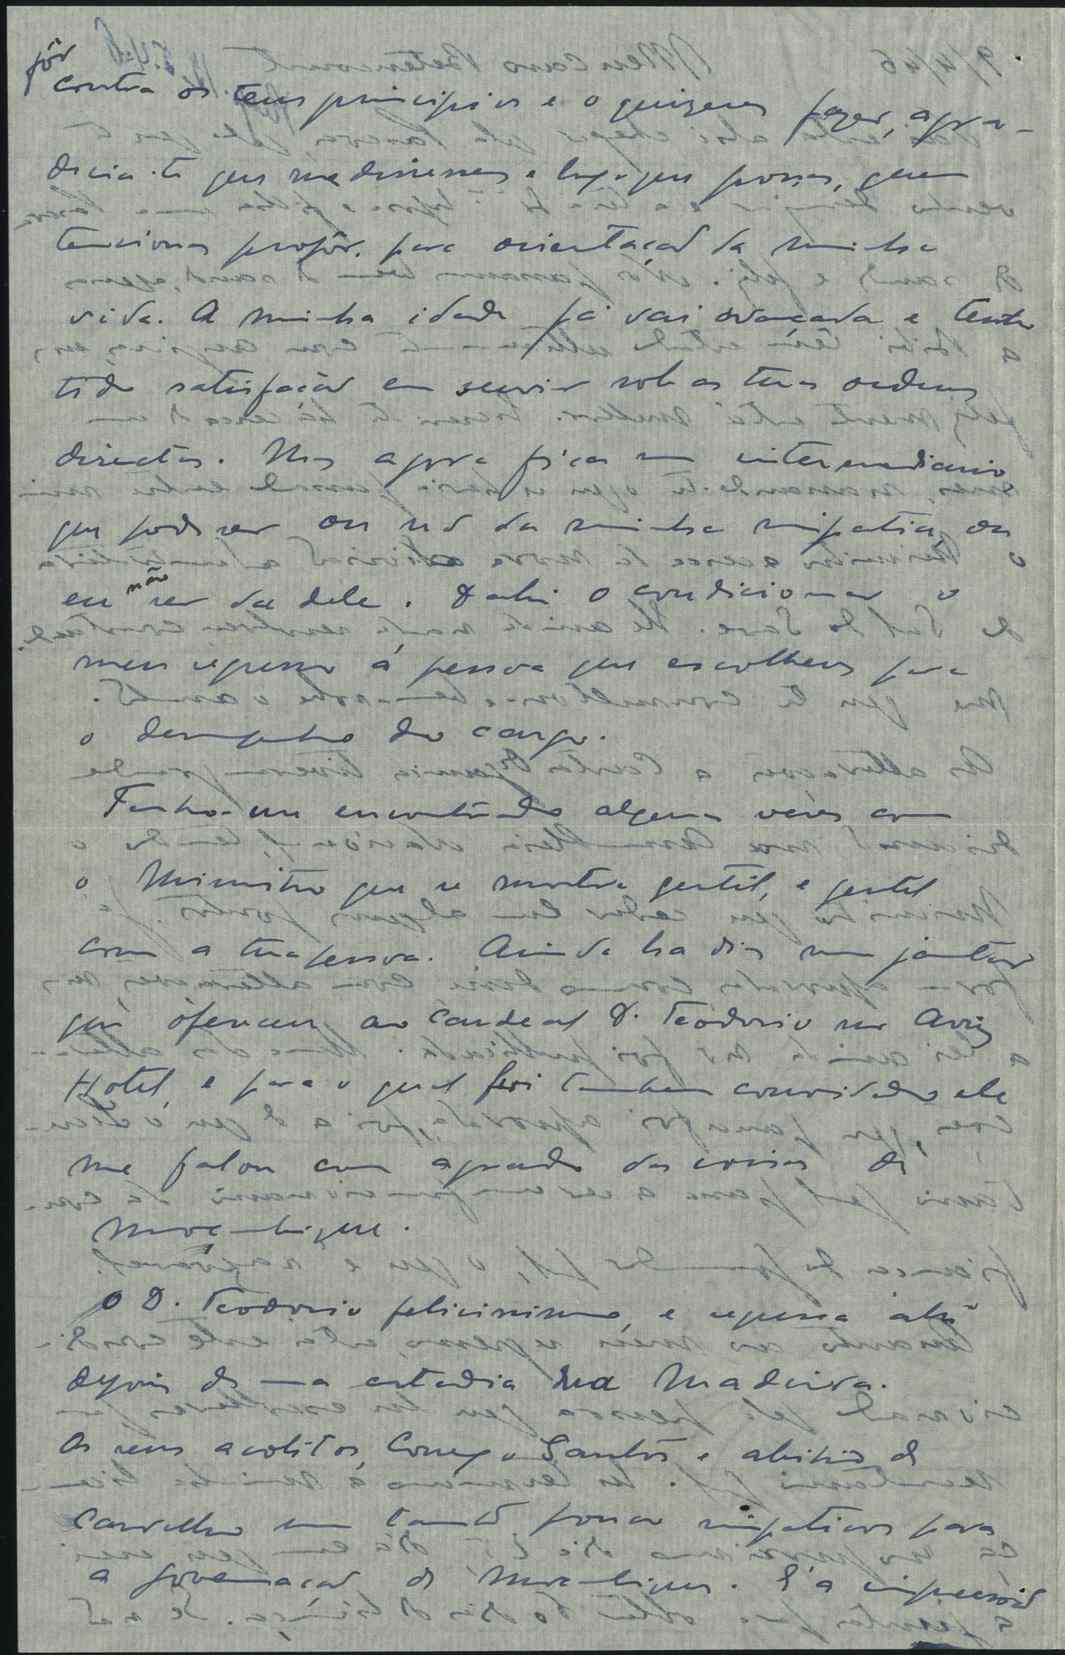 fôr
contra os teus principios e o quizeres fazer, agra-
decia-te que me dissesses e logo que possas, quem
tencionas propôr para orientação da minha
vida. A minha idade já vai avançada e tenho
tido satisfação em servir sob as tuas ordens
directas. Mas agora fica um intermediario
que pode ser ou não da minha simpatia, ou
eu não ser da dele. Dahi o condicionar o
meu regresso á pessoa que escolheres para
o desempenho do cargo.
Tenho-me encontrado algumas vezes com
o Ministro que se mostra gentil, e gentil
com a tua pessoa. Ainda ha dias num jantar
que ofereceu ao Cardeal D. Teodosio no Aviz
Hotel, e para o qual fui tambem convidado ele
me falou com agrado das coisas de
Moçambique.
O D. Teodosio felicissimo, e regressa ahi
depois de uma estadia na Madeira.
Os seus acolitos, Conego Santos e
Carvalho um tanto pouco simpaticos para
a governação de Moçambique. É a impressão